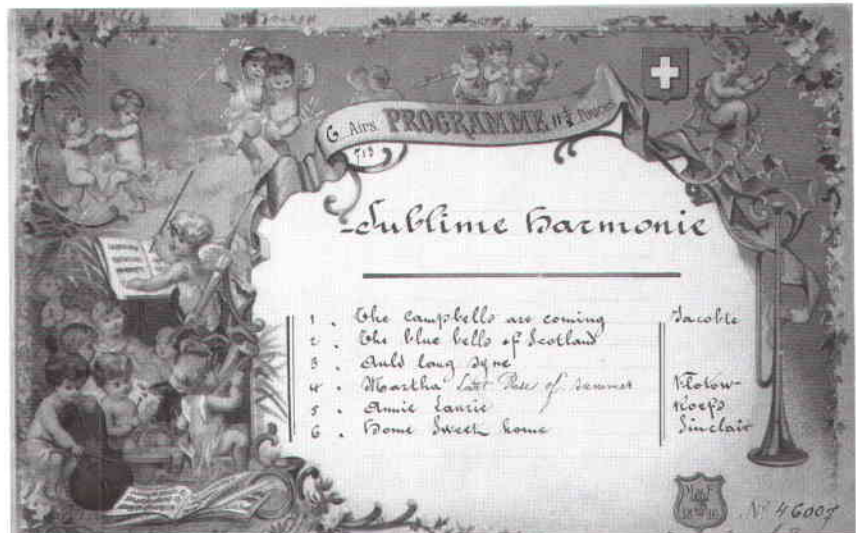 6 Airs PROGRAMME 11¾ Pouces
713
Sublime Harmonie
1. The campbells are coming Jacobte
2. The blue bells of Scotland
3. Auld lang syne
4. Martha Last Rose of Summer Flotow
5. Annie Laurie
6. Home Sweet home Sinclair
No 46007